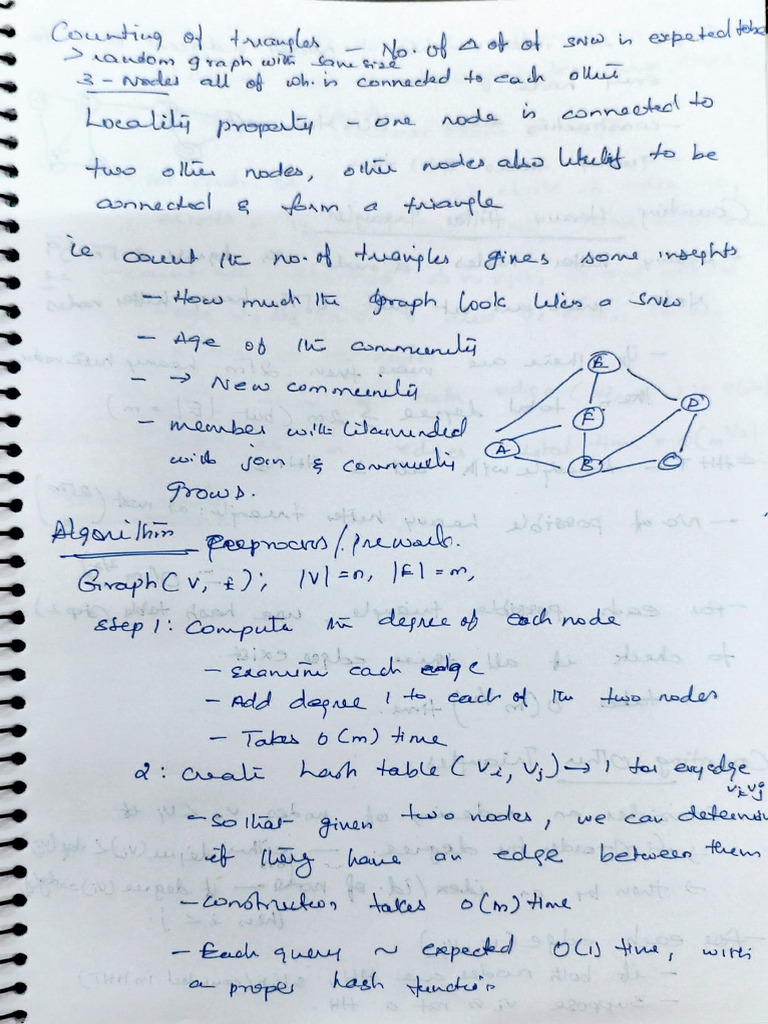 Counting of triangles - No. of Δ of of SNW is expected tobe
> random graph with same size
3 - Nodes all of wh. is connected to each other
Locality property - one node is connected to
two other nodes, other nodes also likely to be
connected & form a triangle
ie count the no. of triangles gives some insights
- How much the graph look like a SNW
- Age of the community
- → New community
- member with likeminded
with join & community
grows.
E
D
F
A
B
C
Algorithm preprocess/prework.
Graph(V, E); |V| = n, |E| = m,
Step 1: Compute the degree of each node
- Examine each edge
- Add degree 1 to each of the two nodes
- Takes O(m) time
2: Create hash table (vi, vj) → 1 for every edge
vi vj
- So that given two nodes, we can determin
if they have an edge between them
- construction takes O(m) time
- Each query ~ expected O(1) time, with
a proper hash function